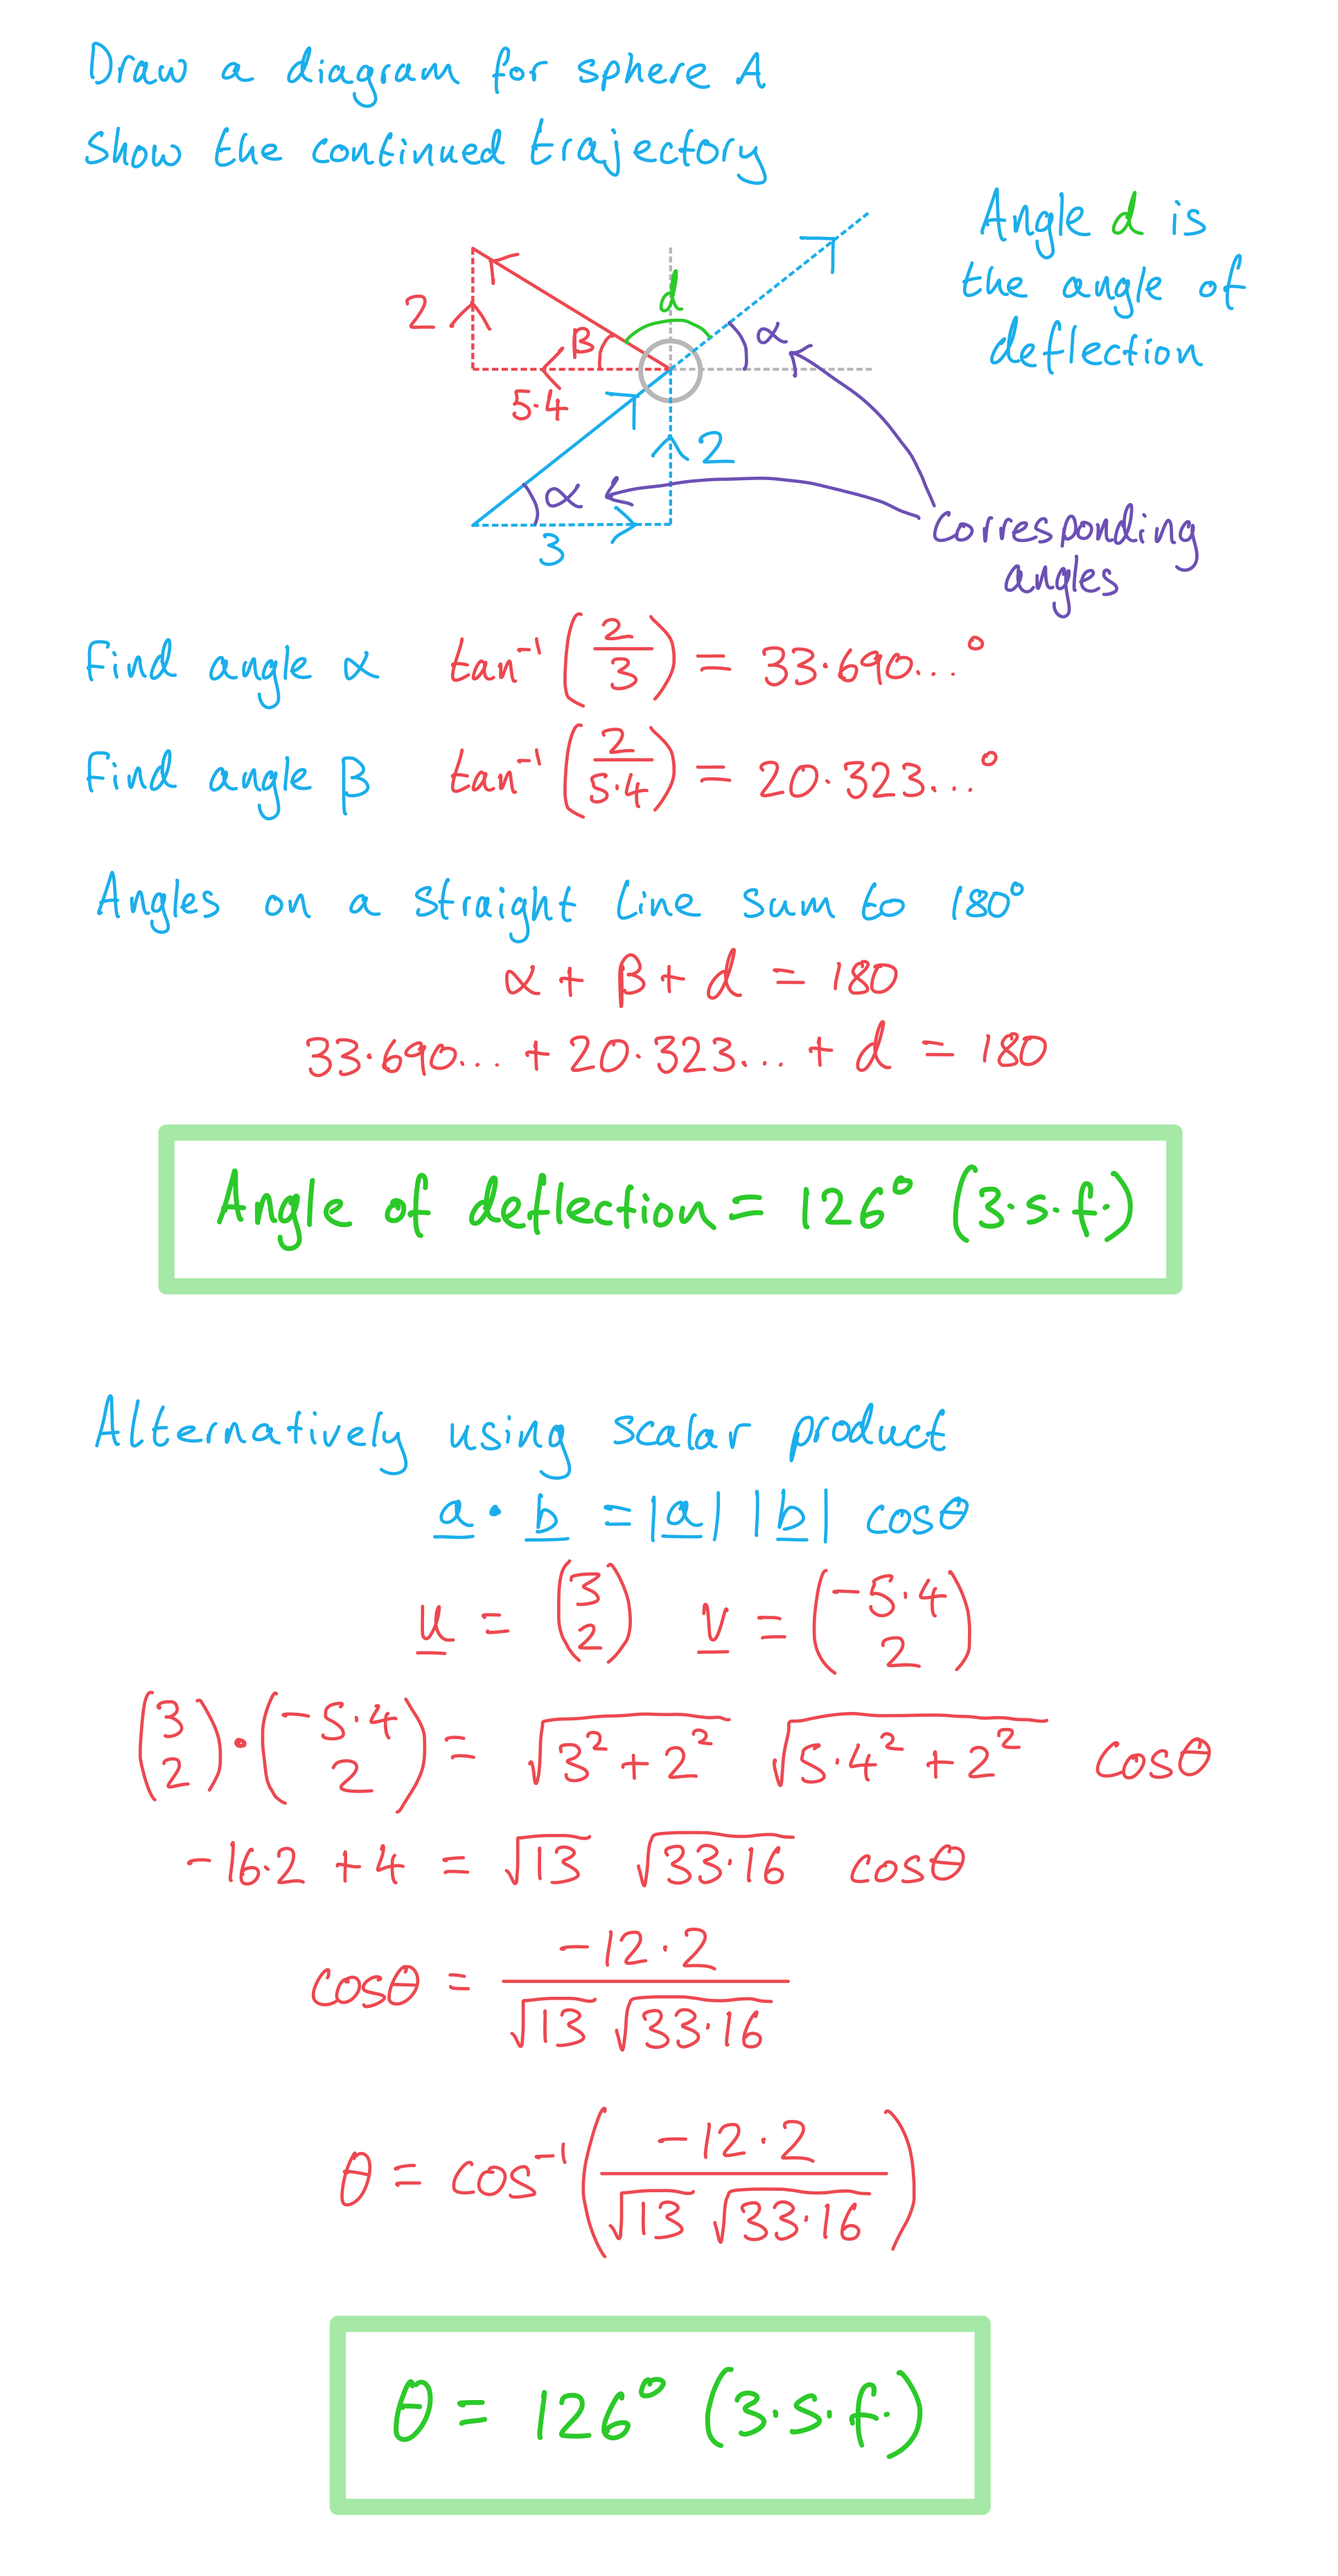 Draw a diagram for sphere A
Show the continued trajectory
Angle d is
the angle of
deflection
d
2
β
α
5·4
2
α
3
Corresponding
angles
Find angle α tan⁻¹(2/3) = 33·690...°
Find angle β tan⁻¹(2/5·4) = 20·323...°
Angles on a straight line sum to 180°
α + β + d = 180
33·690... + 20·323... + d = 180
Angle of deflection = 126° (3.s.f.)
Alternatively using scalar product
a · b = |a| |b| cosθ
u = (3 2) v = (-5·4 2)
(3 2) · (-5·4 2) = √(3² + 2²) √(5·4² + 2²) cosθ
-16·2 + 4 = √13 √33·16 cosθ
cosθ = -12·2 / √13 √33·16
θ = cos⁻¹(-12·2 / √13 √33·16)
θ = 126° (3.s.f.)